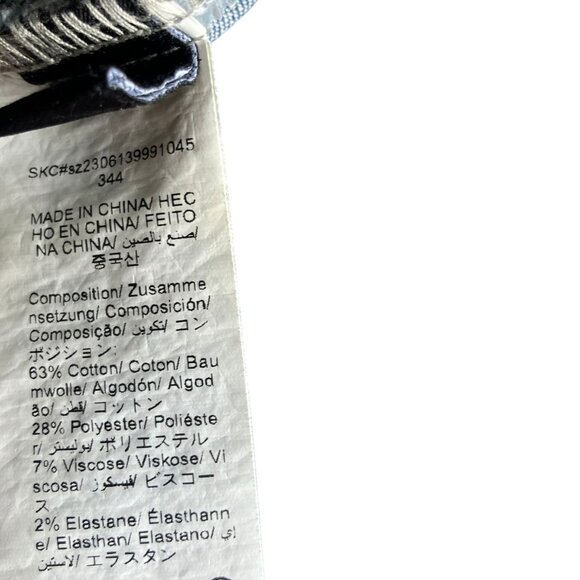 SKC#sz2306139991045
344
MADE IN CHINA/ HEC
HO EN CHINA/ FEITO
NA CHINA/ صنع بالصين/
중국산
Composition/ Zusamme
nsetzung/ Composición/
Composição/ تكوين/ コン
ポジション:
63% Cotton/ Coton/ Bau
mwolle/ Algodón/ Algod
ão/ قطن/ コットン
28% Polyester/ Polieste
r/ بوليستر/ ポリエステル
7% Viscose/ Viskose/ Vi
scosa/ فيسكوز/ ビスコー
ス
2% Elastane/ Élasthann
e/ Elasthan/ Elastano/ إي
لاستين/ エラスタン